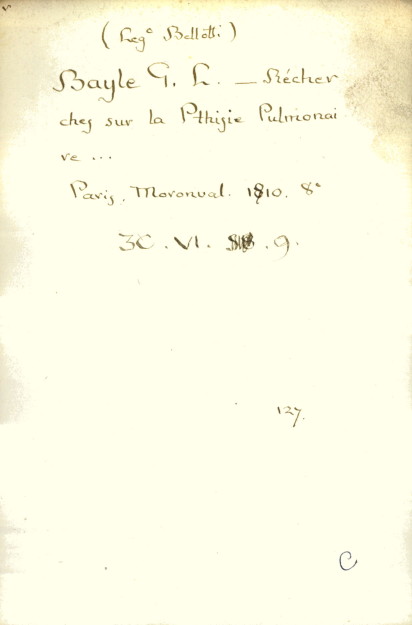 (Leg.e Bellotti)
Bayle G. L. — Récher
ches sur la Pthisie Pulmonai
re ...
Paris, Moronval. 1810. 8°
3C. VI. 9.
127.
C